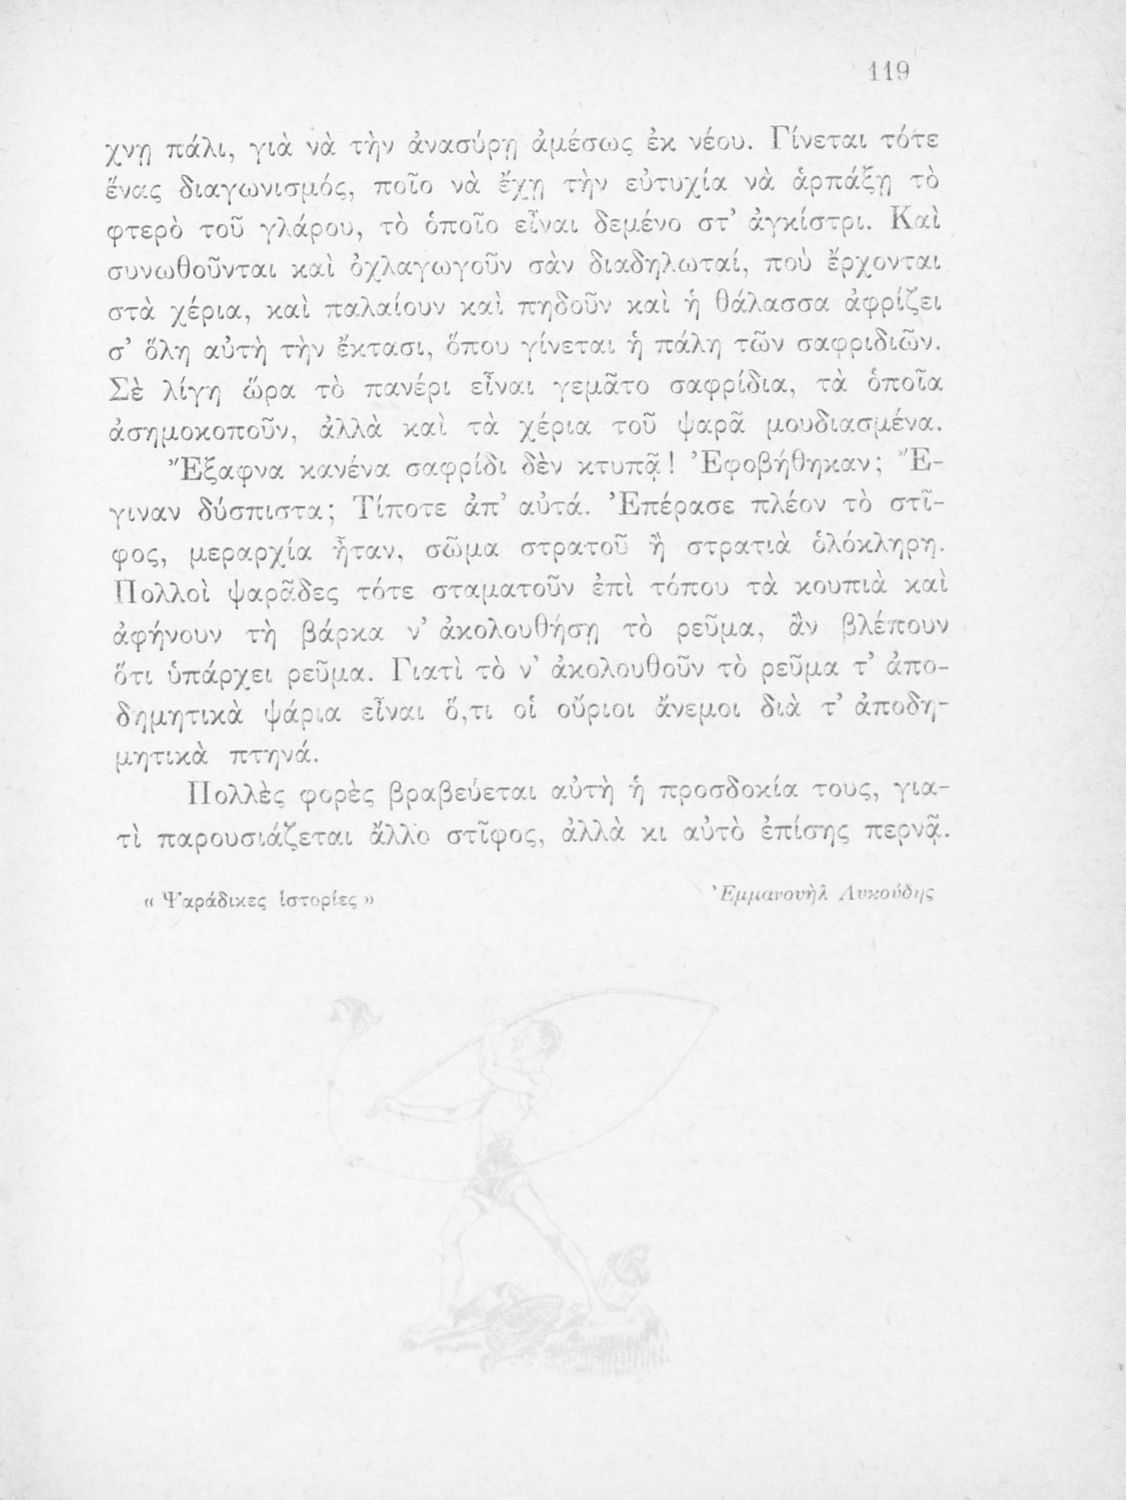 119
χνῃ πάλι, γιὰ νὰ τὴν ἀνασύρῃ ἀμέσως ἐκ νέου. Γίνεται τότε
ἕνας διαγωνισμός, ποῖο νὰ ἔχῃ τὴν εὐτυχία νὰ ἁρπάξῃ τὸ
φτερὸ τοῦ γλάρου, τὸ ὁποῖο εἶναι δεμένο στ’ ἀγκίστρι. Καὶ
συνωθοῦνται καὶ ὀχλαγωγοῦν σὰν διαδηλωταί, ποὺ ἔρχονται
στὰ χέρια, καὶ παλαίουν καὶ πηδοῦν καὶ ἡ θάλασσα ἀφρίζει
σ’ ὅλη αὐτὴ τὴν ἔκτασι, ὅπου γίνεται ἡ πάλη τῶν σαφριδιῶν.
Σὲ λίγη ὥρα τὸ πανέρι εἶναι γεμᾶτο σαφρίδια, τὰ ὁποῖα
ἀσημοκοποῦν, ἀλλὰ καὶ τὰ χέρια τοῦ ψαρᾶ μουδιασμένα.
Ἔξαφνα κανένα σαφρίδι δὲν κτυπᾷ! Ἐφοβήθηκαν; Ἔ-
γιναν δύσπιστα; Τίποτε ἀπ’ αὐτά. Ἐπέρασε πλέον τὸ στῖ-
φος, μεραρχία ἦταν, σῶμα στρατοῦ ἢ στρατιὰ ὁλόκληρη.
Πολλοὶ ψαρᾶδες τότε σταματοῦν ἐπὶ τόπου τὰ κουπιὰ καὶ
ἀφήνουν τὴ βάρκα ν’ ἀκολουθήσῃ τὸ ρεῦμα, ἂν βλέπουν
ὅτι ὑπάρχει ρεῦμα. Γιατὶ τὸ ν’ ἀκολουθοῦν τὸ ρεῦμα τ’ ἀπο-
δημητικὰ ψάρια εἶναι ὅ,τι οἱ οὔριοι ἄνεμοι διὰ τ’ ἀποδη-
μητικὰ πτηνά.
Πολλὲς φορὲς βραβεύεται αὐτὴ ἡ προσδοκία τους, για-
τὶ παρουσιάζεται ἄλλο στῖφος, ἀλλὰ κι αὐτὸ ἐπίσης περνᾷ.
« Ψαράδικες ἱστορίες » Ἐμμανουὴλ Λυκούδης